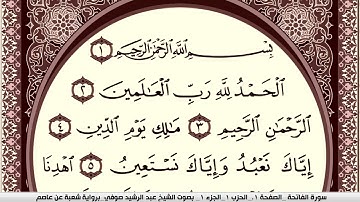 بِسْمِ ٱللَّهِ ٱلرَّحْمَٰنِ ٱلرَّحِيمِ ١
ٱلْحَمْدُ لِلَّهِ رَبِّ ٱلْعَٰلَمِينَ ٢
ٱلرَّحْمَٰنِ ٱلرَّحِيمِ ٣ مَٰلِكِ يَوْمِ ٱلدِّينِ ٤
إِيَّاكَ نَعْبُدُ وَإِيَّاكَ نَسْتَعِينُ ٥ ٱهْدِنَا
سورة الفاتحة _ الصفحة ١ _ الحزب ١ _ الجزء ١ _ بصوت الشيخ عبد الرشيد صوفي، برواية شعبة عن عاصم